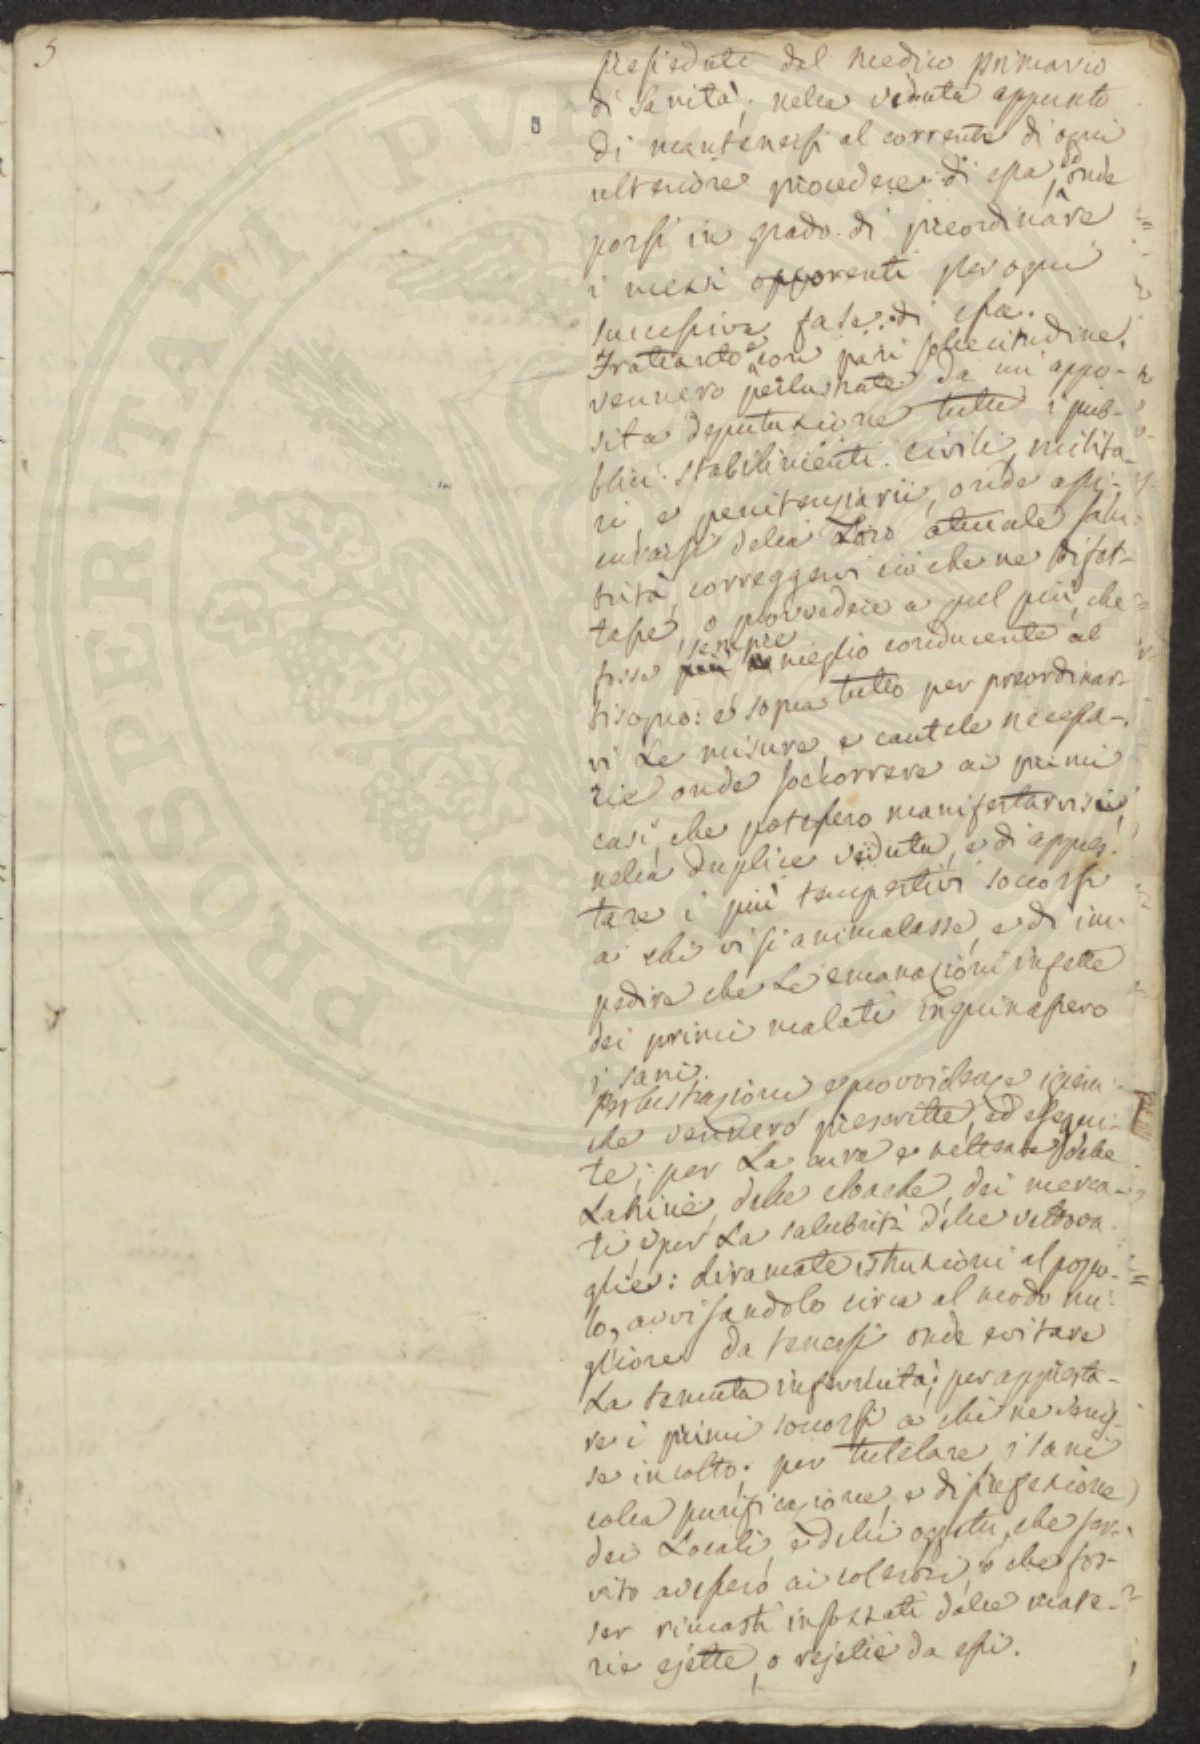 5
presieduti dal medico primario
di Sanità; nella veduta appunto
di mantenersi al corrente di ogni
ulteriore procedere di essa, ed onde
porsi in grado di preordinare
i mezzi opporenti per ogni
successiva fase di essa.
Frattanto e con pari sollecitudine,
vennero perlustrate da un' appo-
sita deputazione tutti i pub-
blici stabilimenti civili, milita-
ri, e penitenziarii, onde assi-
curarsi della Loro attuale salu-
brità, correggervi ciò che ne difet-
tasse, o provvedere a quel più, che
fosse sempre meglio conducente al
bisogno: e sopra tutto per preordinar-
vi Le misure, e cautele necessa-
rie onde soccorrere ai primi
casi, che potessero manifestarvisi,
nella duplice veduta, e di appres-
tare i più tempestivi soccorsi
a chi vi si ammalasse, e di im-
pedire che Le emanazioni infette
dei primi malati inquinassero
i sani.
Perlustrazioni e provvidenze igieni-
che vennero prescritte, ed esegui-
te; per La cura e nettezza delle
Latrine, delle cloache, dei merca-
ti e per La salubrità delle vettova-
glie: diramate istruzioni al popo-
lo, avvisandolo circa al modo mi-
gliore da tenersi onde evitare
La temuta infermità; per appresta-
re i primi soccorsi a chi ne venis-
se incolto; per tutelare i sani
colla purificazione, e disinfezione
dei Locali, e delli oggetti, che ser-
vito avessero ai colerosi, o che fos-
ser rimasti insozzati dalle mate-
rie ejette, o rejette da essi.
PROSPERITATI PUBLICAE